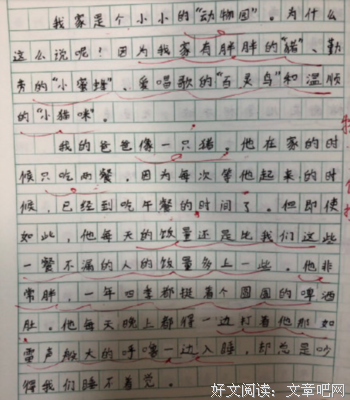 我家是个小小的“动物园”。为什么
这么说呢？因为我家有胖胖的“猪”、勤
劳的“小蜜蜂”、爱唱歌的“百灵鸟”和温顺
的“小猫咪”。
我的爸爸像一只猪。他在家的时
候只吃两餐，因为每次等他起来的时
候，已经到吃午餐的时间了。但即使
如此，他每天的饭量还是比我们这些
一餐不漏的人的饭量多上一些。他非
常胖，一年四季都挺着个圆圆的啤酒
肚。他每天晚上都得一边打着他那如
雷声般大的呼噜一边入睡，却总是吵
得我们睡不着觉。
好文阅读：文章吧网